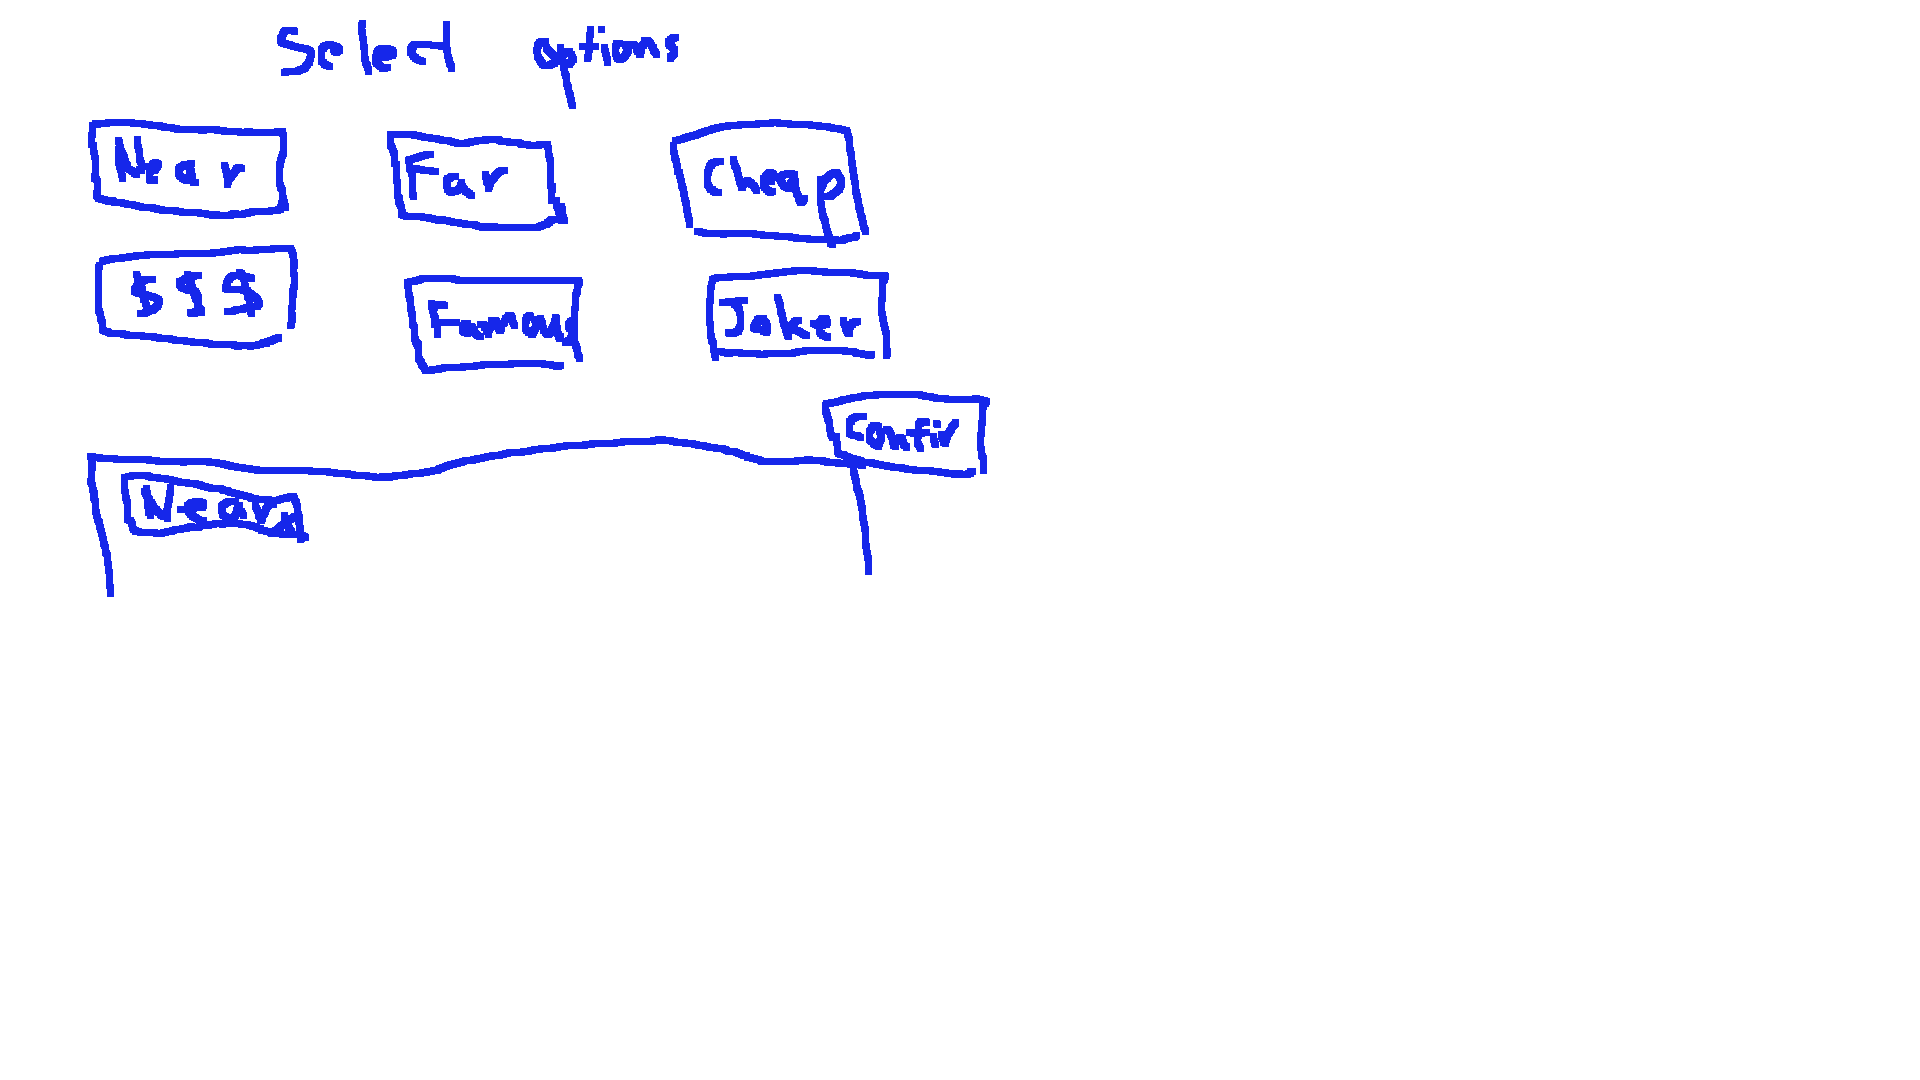 Select options
Near Far Cheap
$$$ Famous Joker
Confir
Near x